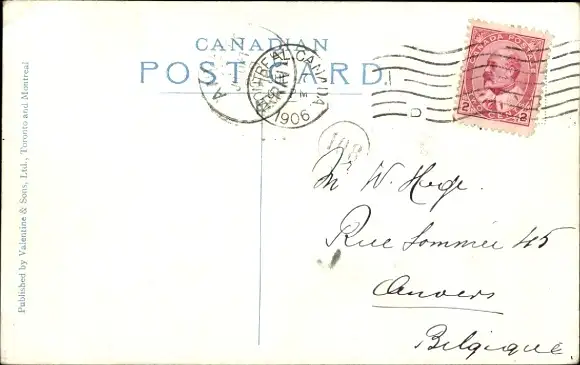 CANADIAN
POST CARD.
MONTREAL CANADA
1906
CANADA POSTAGE
2 CENTS 2
108
Mr W. Hege.
Rue Sommée 45
Anvers
Belgique.
Published by Valentine & Sons, Ltd., Toronto and Montreal